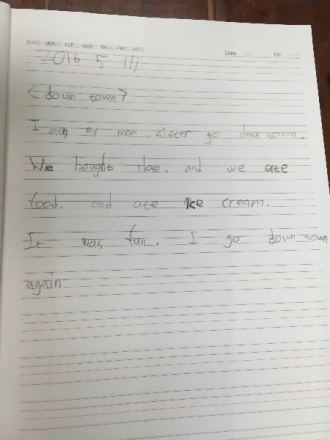 SUN□ MON□ TUE□ WED□ THU□ FRI□ SAT□ Date No
2016 5 17
<down town>
I and my mom, sister go down town.
We bought close. and we ate
food. and ate ice cream.
It was fun. I go down town
again